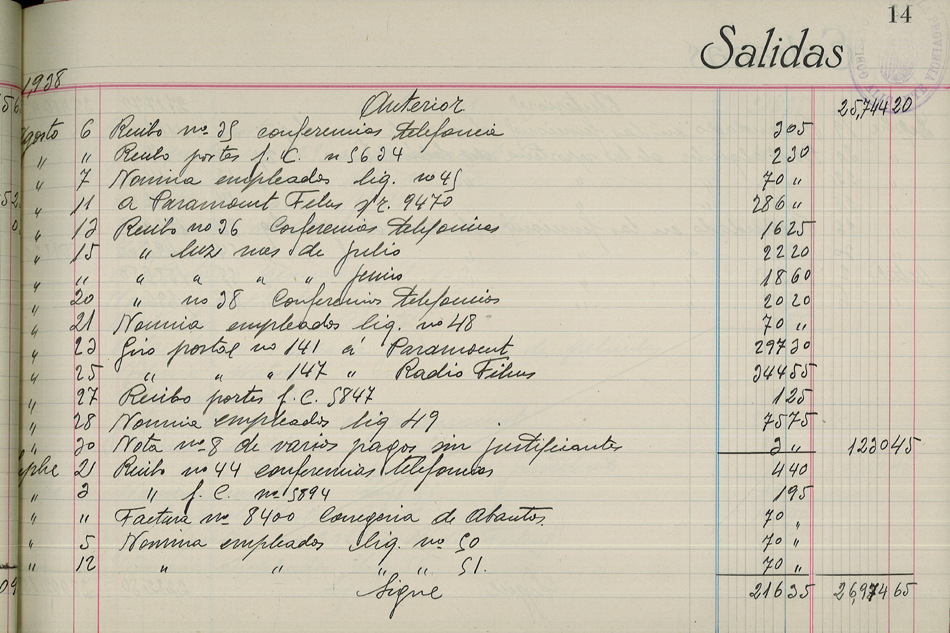 14
Salidas
1,938
Anterior 25,744 20
Agosto 6 Recibo nº 35 conferencias telefonicas 3 05
" " Recibo portes f. C. n 5634 2 30
" 7 Nomina empleados liq. nº 45 70 "
" 11 a Paramount Films s/r. 9470 286 "
" 13 Recibo nº 36 Conferencias telefonicas 16 25
" 15 " luz mes de julio 22 20
" " " " " " junio 18 60
" 20 " nº 38 Conferencias telefonicas 20 20
" 21 Nomina empleados liq. nº 48 70 "
" 23 Giro postal nº 141 á Paramount 297 30
" 25 " " " 147 " Radio Films 344 55
" 27 Recibo portes f. C. 5847 1 25
" 28 Nomina empleados liq 49 75 75
" 30 Nota nº 8 de varios pagos sin justificante 3 " 1230 45
Sptbe 21 Recibo nº 44 conferencias telefonicas 4 40
" 3 " f. C. nº 5894 1 95
" " Factura nº 8400 Consegeria de Abastos 70 "
" 5 Nomina empleados liq. nº 50 70 "
" 12 " " " " 51. 70 "
Sigue 216 35 26,974 65